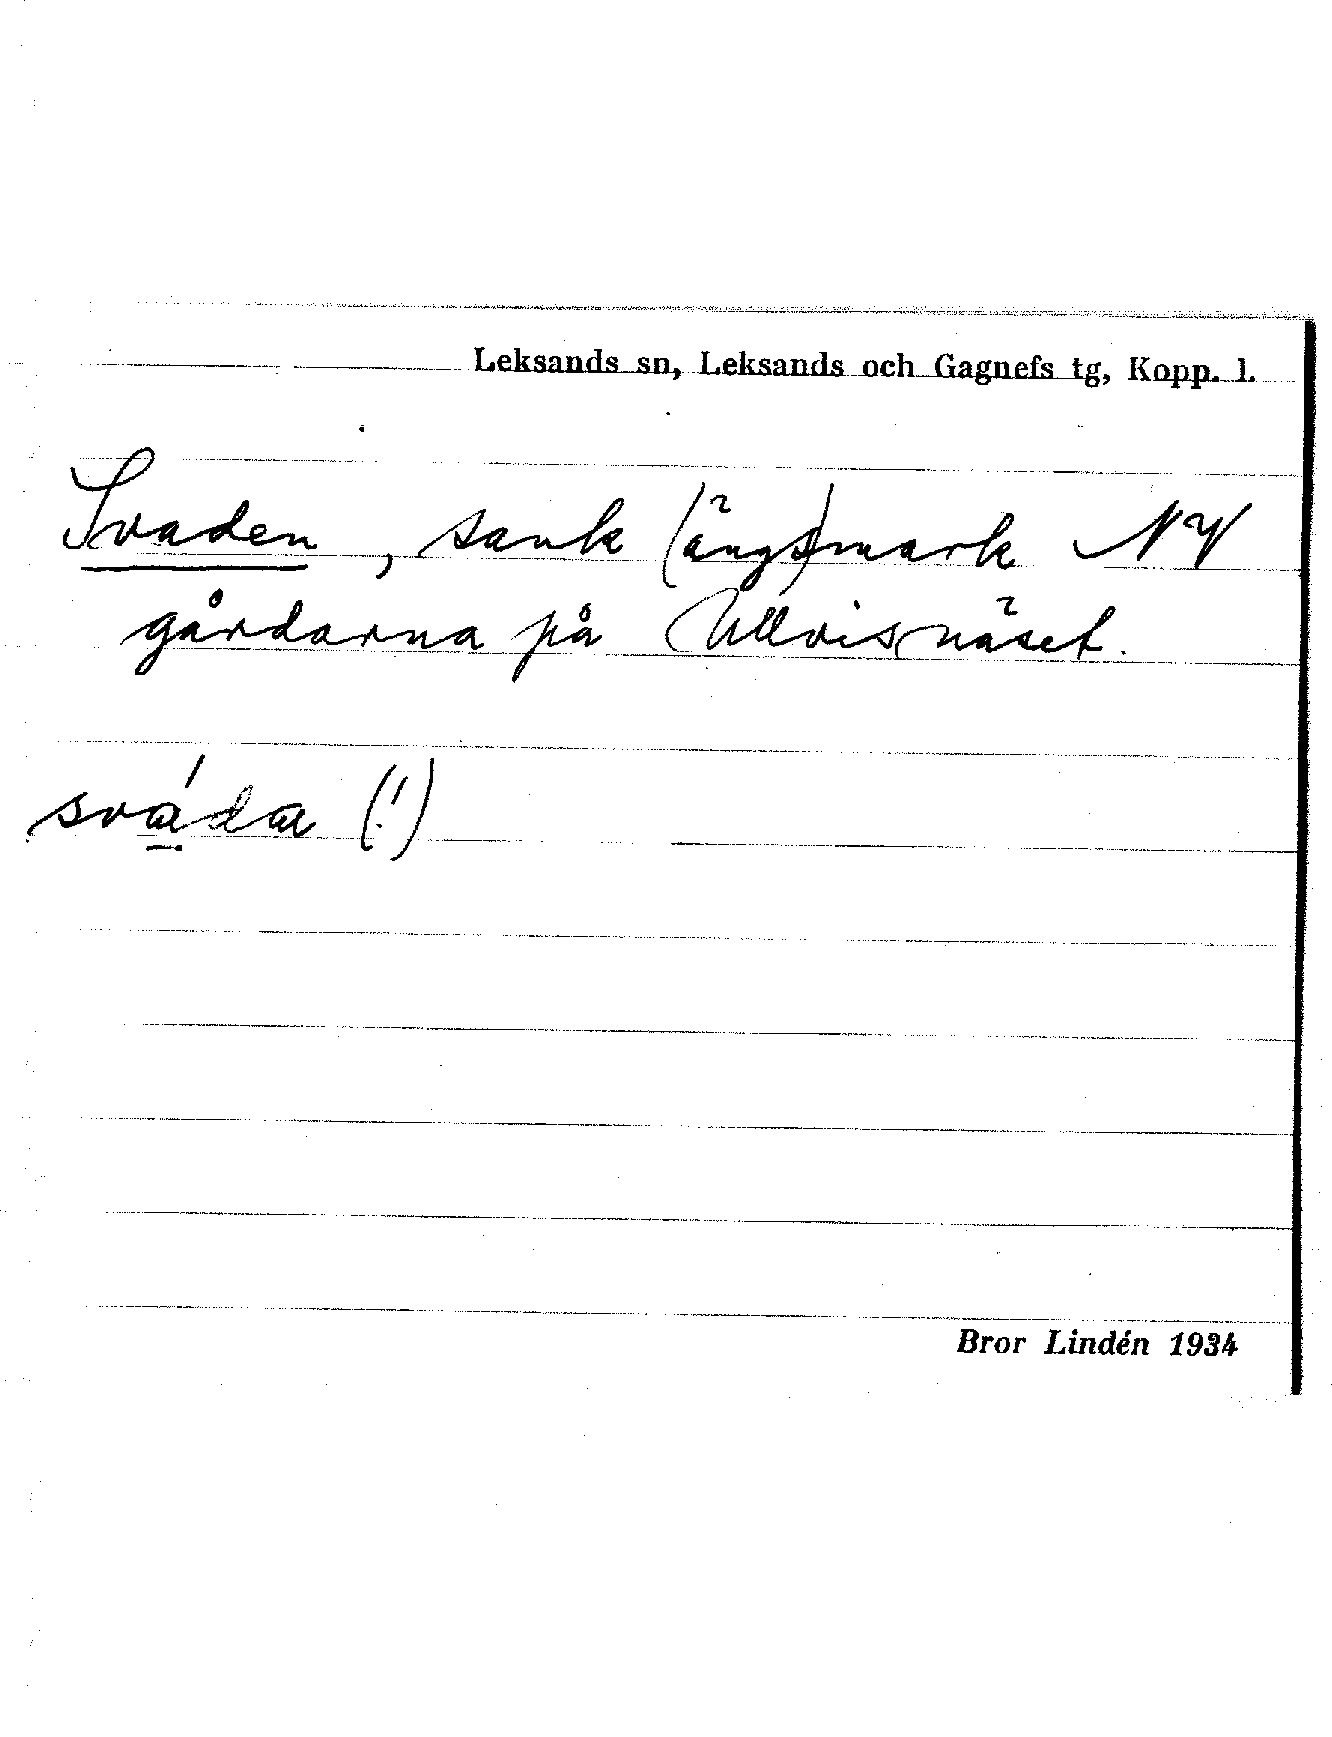 Leksands sn, Leksands och Gagnefs tg, Kopp. l.
Svaden, sank (ängs)mark NV
gårdarna på Ullvisnäset.
sváda (!)
Bror Lindén 1934